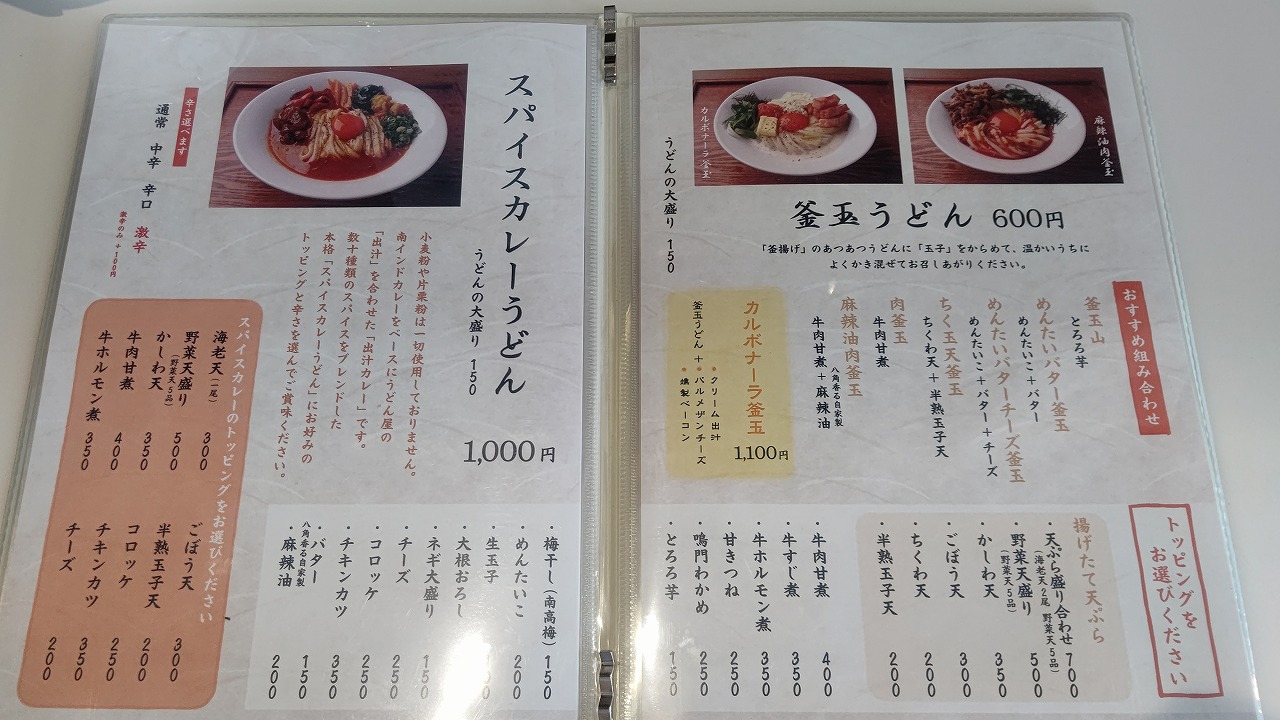 釜玉うどん 600円
「釜揚げ」のあつあつうどんに「玉子」をからめて、温かいうちに
よくかき混ぜてお召しあがりください。
麻辣油肉釜玉
カルボナーラ釜玉
うどんの大盛り 150
おすすめ組み合わせ
釜玉山
とろろ芋
めんたいバター釜玉
めんたいこ+バター
めんたいバターチーズ釜玉
めんたいこ+バター+チーズ
ちく玉天釜玉
ちくわ天+半熟玉子天
肉釜玉
牛肉甘煮
麻辣油肉釜玉
八角香る自家製
牛肉甘煮+麻辣油
カルボナーラ釜玉
1,100円
釜玉うどん+
・クリーム出汁
・パルメザンチーズ
・燻製ベーコン
トッピングを
お選びください
揚げたて天ぷら
・天ぷら盛り合わせ 700
(海老天2尾 野菜天5品)
・野菜天盛り 500
(野菜天5品)
・かしわ天 350
・ごぼう天 300
・ちくわ天 200
・半熟玉子天 200
・牛肉甘煮 400
・牛すじ煮 350
・牛ホルモン煮 350
・甘きつね 250
・鳴門わかめ 250
・とろろ芋 150
スパイスカレーうどん
うどんの大盛り 150
1,000円
小麦粉や片栗粉は一切使用しておりません。
南インドカレーをベースにうどん屋の
「出汁」を合わせた「出汁カレー」です。
数十種類のスパイスをブレンドした
本格「スパイスカレーうどん」にお好みの
トッピングと辛さを選んでご賞味ください。
辛さ選べます
通常 中辛 辛口 激辛
激辛のみ+100円
スパイスカレーのトッピングをお選びください
海老天(一尾) 300
野菜天盛り 500
(野菜天5品)
かしわ天 350
牛肉甘煮 400
牛ホルモン煮 350
ごぼう天 300
半熟玉子天 200
コロッケ 250
チキンカツ 350
チーズ 200
・梅干し(南高梅) 150
・めんたいこ 200
・生玉子
・大根おろし
・ネギ大盛り 150
・チーズ 250
・コロッケ 250
・チキンカツ 350
・バター 150
八角香る自家製
・麻辣油 200